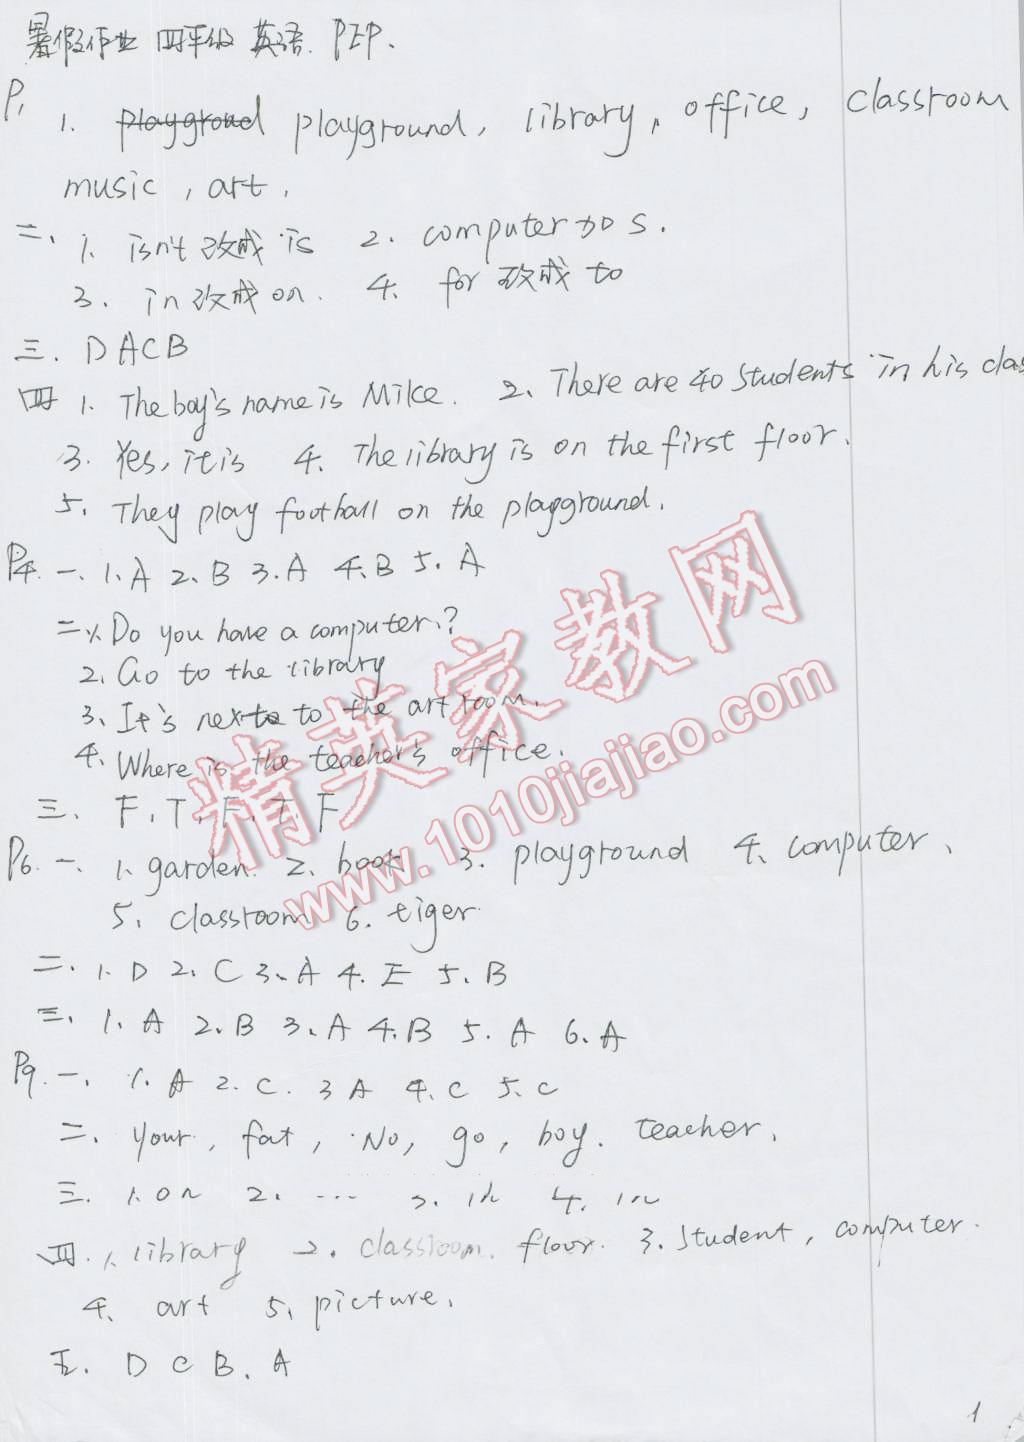 暑假作业 四年级 英语. PEP.
P1 1. playgroud playground, library, office, classroom
music, art.
二、1. isn't改成 is 2. computer加s.
3. in改成on. 4. for改成to
三. DACB
四 1. The boy's name is Mike. 2、There are 40 students in his clas
3. Yes, it is 4. The library is on the first floor.
5. They play football on the playground.
P4. 一、1.A 2.B 3.A 4.B 5.A
二 1. Do you have a computer?
2. Go to the library
3. It's next to the art room.
4. Where is the teacher's office.
三. F. T. F. T. F
P6. 一. 1. garden. 2. book 3. playground 4. computer.
5. classroom 6. tiger
二. 1. D 2. C 3. A 4. E 5. B
三. 1. A 2. B 3. A 4. B 5. A 6. A
P9. 一. 1. A 2. C. 3 A 4. C 5. C
二. your, fat, No, go, boy. teacher.
三. 1. on 2. ... 3. in 4. in
四. 1. library 2. classroom. floor. 3. student, computer.
4. art 5. picture.
五. D C B. A
精英家教网
www.1010jiajiao.com
1